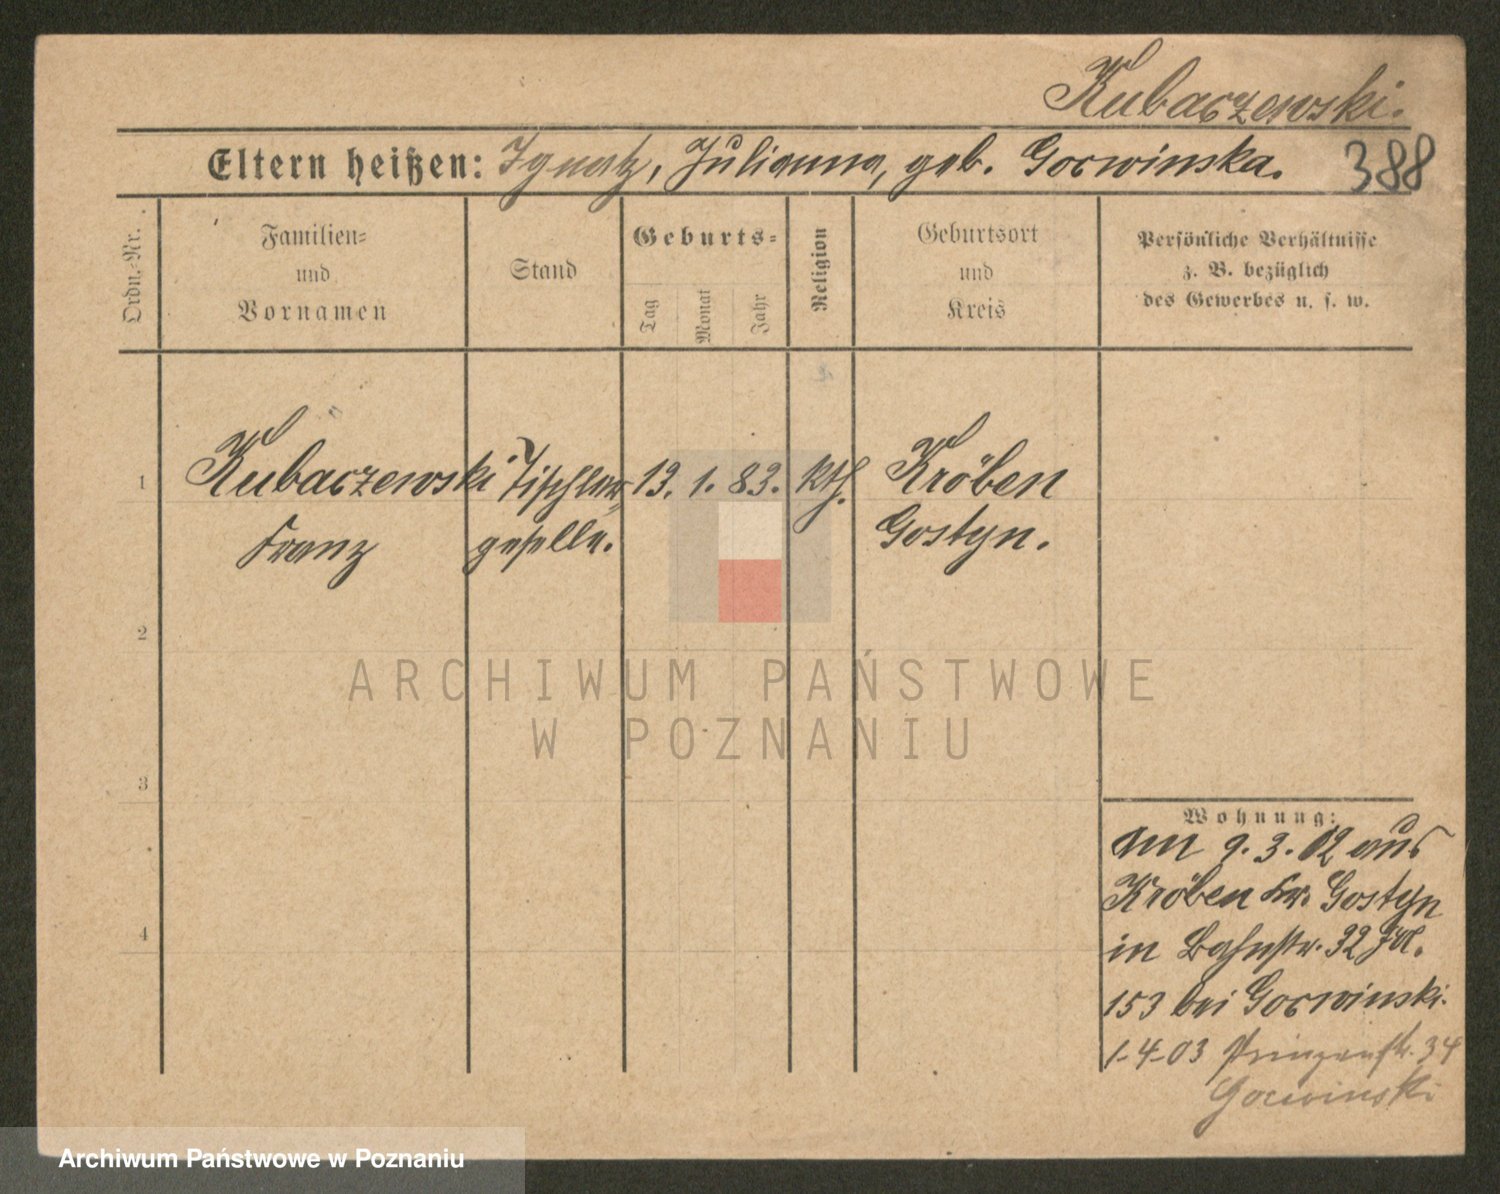 Kubaczewski.
Eltern heißen: Ignatz, Julianna, geb. Gorwinska. 388
Ordn.-Nr.
Familien-
und
Vornamen
Stand
Geburts-
Tag
Monat
Jahr
Religion
Geburtsort
und
Kreis
Persönliche Verhältnisse
z. B. bezüglich
des Gewerbes u. s. w.
1 Kubaczewski Tischler- 13. 1. 83. kth. Kröben
Franz geselle. Gostyn.
2
ARCHIWUM PAŃSTWOWE
W POZNANIU
3
Wohnung:
am 9.3.02 aus
Kröben Kr. Gostyn
4
in Bahnstr. 32
153 bei Gorwinski.
1-4-03 Prinzenstr. 34
Gorwinski
Archiwum Państwowe w Poznaniu